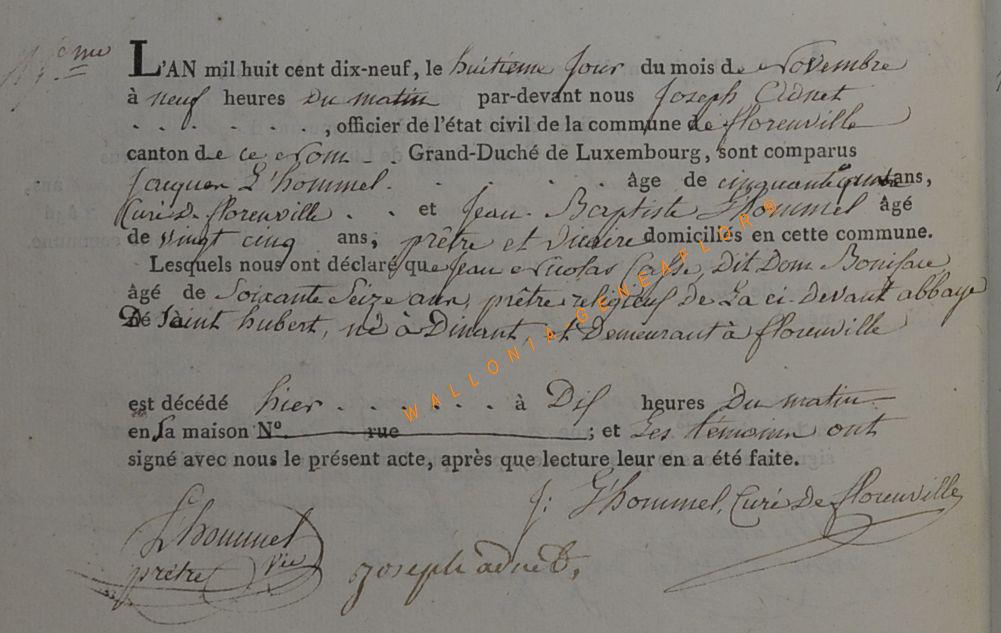 17eme
L'AN mil huit cent dix-neuf, le huitieme jour du mois de Novembre
à neuf heures Du matin par-devant nous Joseph Adnet
. . . . . . . , officier de l'état civil de la commune de florenville
canton de ce Nom - Grand-Duché de Luxembourg, sont comparus
Jacques L'hommel . . . . . âge de cinquante quatre ans,
Curé De florenville . . et Jean-Baptiste L'hommel âgé
de vingt cinq ans, prêtre et vicaire domiciliés en cette commune.
Lesquels nous ont déclaré que Jean Nicolas Dit Dom Boniface
âgé de Soixante Seize ans, prêtre religieux De La ci-Devant abbaye
De Saint hubert, né à Dinant, et Demeurant à florenville
est décédé hier . . . . . . à Dix heures Du matin
en sa maison Nº rue ; et Les témoins ont
signé avec nous le présent acte, après que lecture leur en a été faite.
J: L'hommel, Curé De florenville
L'hommel
prêtre vic
joseph adnet,
WALLONIA GENEAFLORE